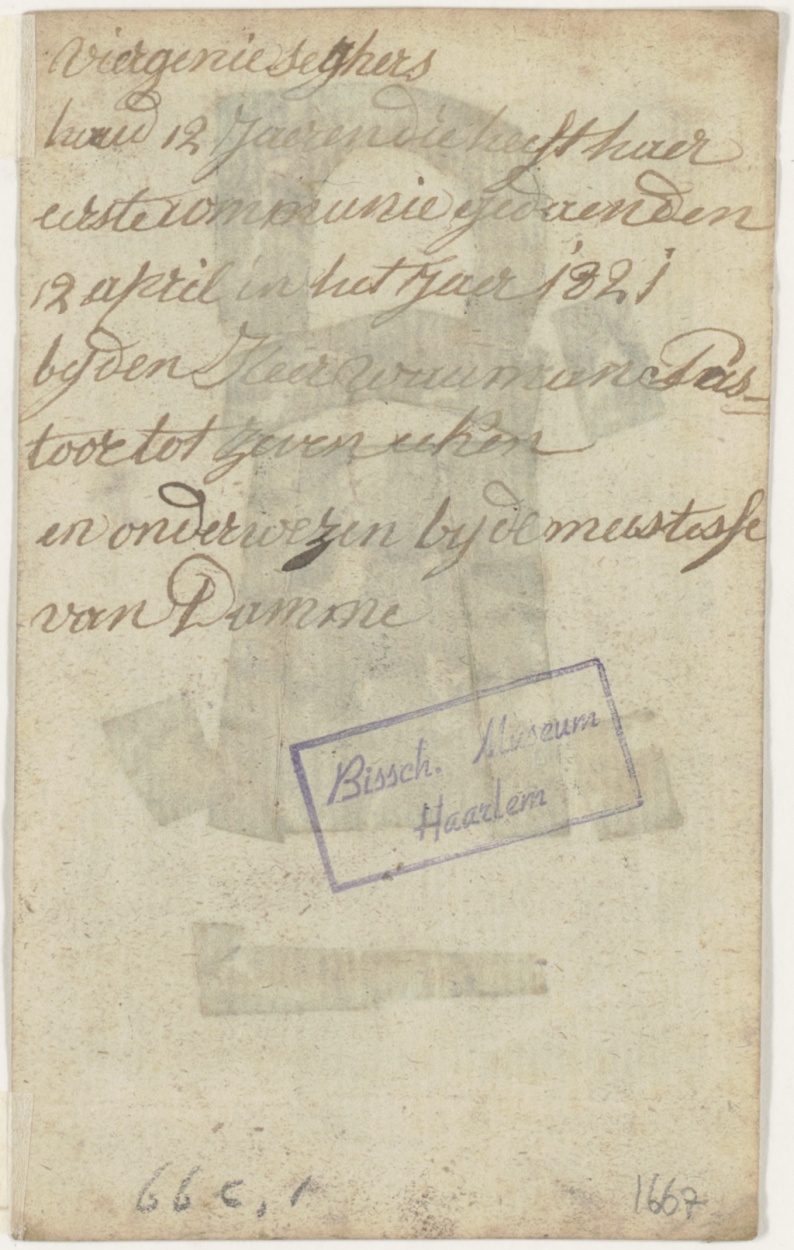 viergenie seghers
houd 12 Jaeren die heeft haer
eerste communie gedaen den
12 april in het Jaer 1821
by den Heer wauman Pas-
toor tot zeveneeken
en onderwezen by de meestesse
van Damme
Bissch. Museum
Haarlem
66 c, 1
1667